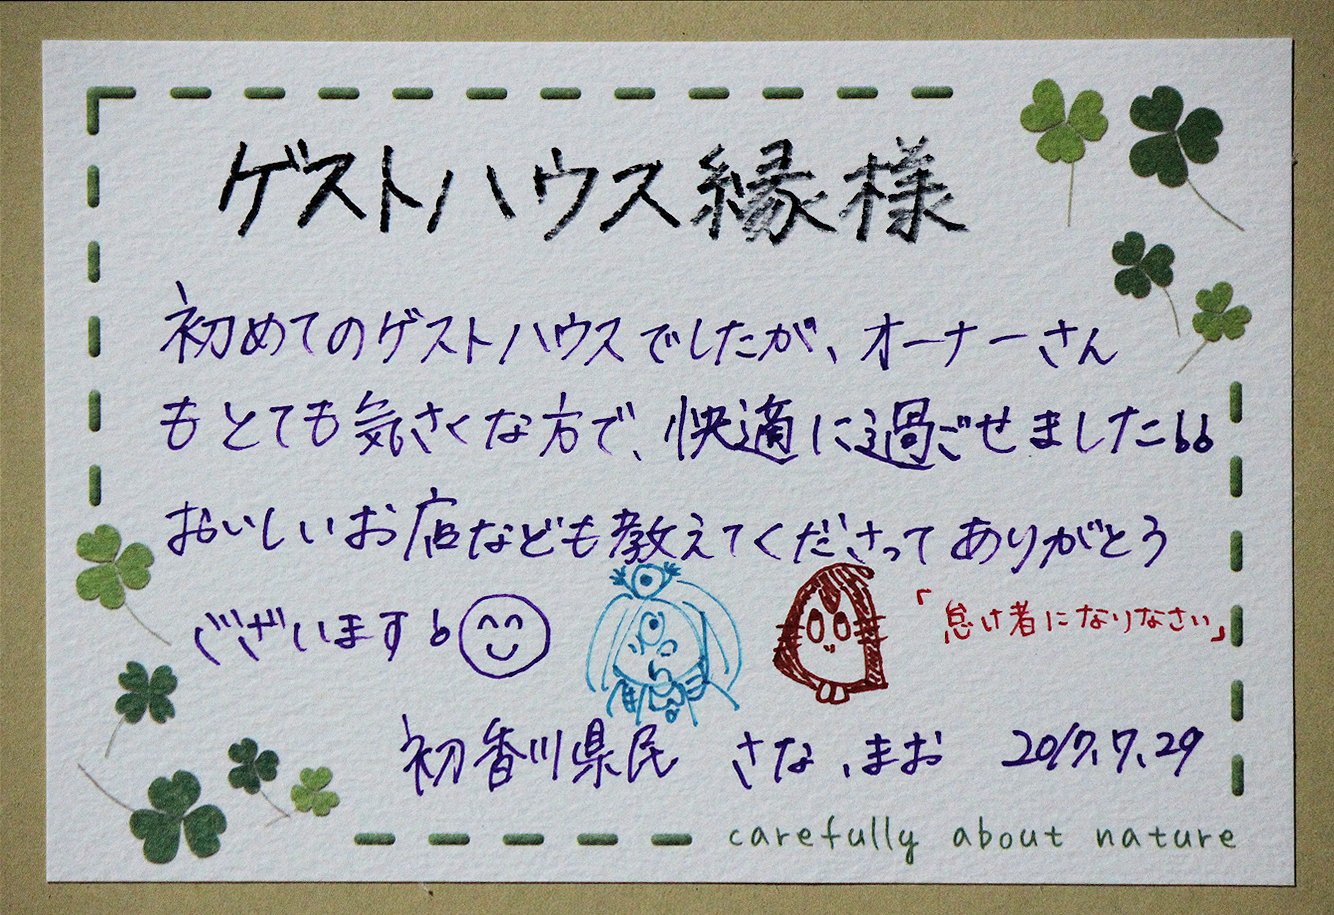 ゲストハウス縁様
初めてのゲストハウスでしたが、オーナーさん
もとても気さくな方で、快適に過ごせました
おいしいお店なども教えてくださってありがとう
ございます
「怠け者になりなさい」
初香川県民 さな、まお 2017.7.29
carefully about nature